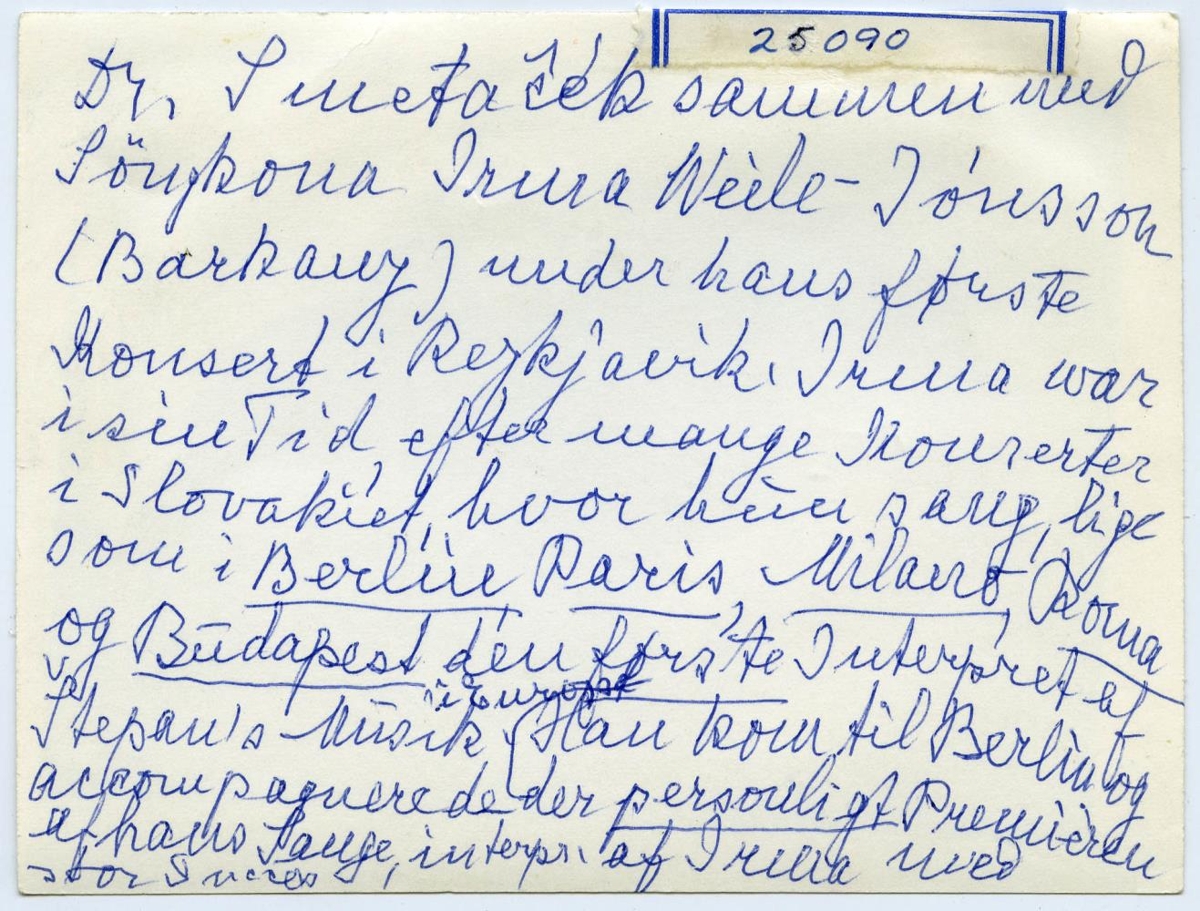 25090
Dr. Smetaček sammen med
Söngkona Irma Weile-Jónsson
(Barkany) under hans første
Konsert i Reykjavik. Irma war
i sin Tid efter mange Konzerter
i Slovakiet, hvor hun sang, lige
som i Berlin, Paris, Milano, Roma
og Budapest den første Interpret af
Štepan's Musik i Europa (Han kom til Berlin og
accompagnerede der personligt Premièren
af hans Sange, interpr. af Irma med
stor Succes